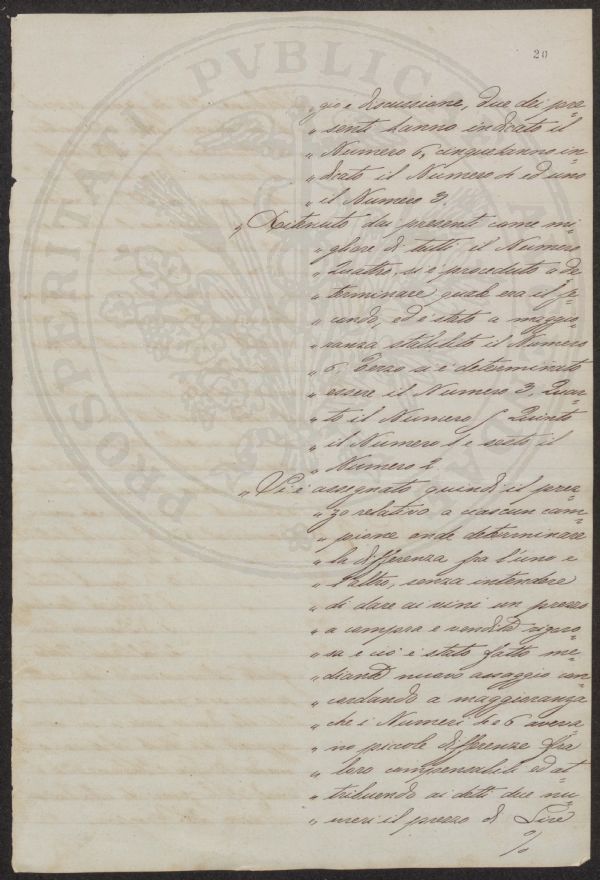 20
„ gio e discussione, due dei pre=
„ senti hanno indicato il
„ Numero 6, cinque hanno in=
„ dicato il Numero 4 ed uno
„ il Numero 3.
„ Ritenuto dai presenti come mi=
„ gliore di tutti il Numero
„ Quattro, si è proceduto a de=
„ terminare quale era il se=
„ condo, ed è stato a maggio=
„ ranza stabilito il Numero
„ 6, Terzo si è determinato
„ essere il Numero 3, Quar=
„ to il Numero 5 Quinto
„ il Numero 1 e sesto il
„ Numero 2
„ Si è assegnato quindi il prez=
„ zo relativo a ciascun cam=
„ pione onde determinare
„ la differenza fra l'uno e
„ l'altro, senza intendere
„ di dare ai vini un prezzo
„ a compra e vendita rigoro=
„ sa e ciò è stato fatto me=
„ diante nuovo assaggio con=
„ cordando a maggioranza
„ che i Numeri 4 e 6 aveva=
„ no piccole differenze fra
„ loro compensabili ed at=
„ tribuendo ai detti due nu=
„ meri il prezzo di Lire
%
PROSPERITATI PVBLICAE AVGENDAE